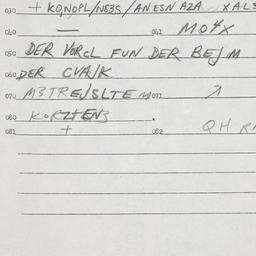 030 + KONOPL/NS3S/ANESN AZA XAL
040 — 041 MO4X
050 DER VORCL FUN DER BE/M
060 DER CVA/K
070 M3TRE/SLTE 071
080 KORZTEN3 .
081 + 082 QH